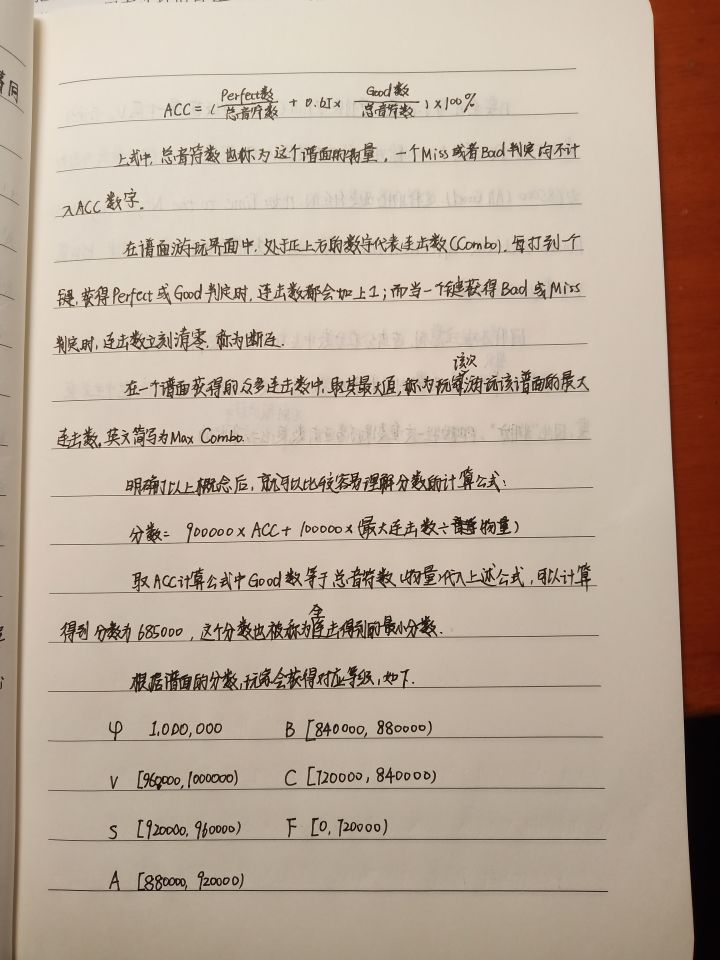 ACC = ( Perfect数/总音符数 + 0.65 × Good数/总音符数 ) × 100%
上式中, 总音符数也称为这个谱面的物量, 一个Miss或者Bad判定均不计
入ACC数字.
在谱面游玩界面中, 处于正上方的数字代表连击数(Combo). 每打到一个
键, 获得Perfect或Good判定时, 连击数都会加上1; 而当一个键获得Bad或Miss
判定时, 连击数立刻清零, 称为断连.
在一个谱面获得的众多连击数中, 取其最大值, 称为玩家该次游玩该谱面的最大
连击数, 英文简写为Max Combo.
明确了以上概念后, 就可以比较容易理解分数的计算公式:
分数= 900000×ACC+ 100000×(最大连击数÷物量)
取ACC计算公式中Good数等于总音符数(物量)代入上述公式, 可以计算
得到分数为685000, 这个分数也被称为全连击得到的最小分数.
根据谱面的分数, 玩家会获得对应等级, 如下.
φ 1,000,000 B [840000, 880000)
V [960000, 1000000) C [720000, 840000)
S [920000, 960000) F [0, 720000)
A [880000, 920000)